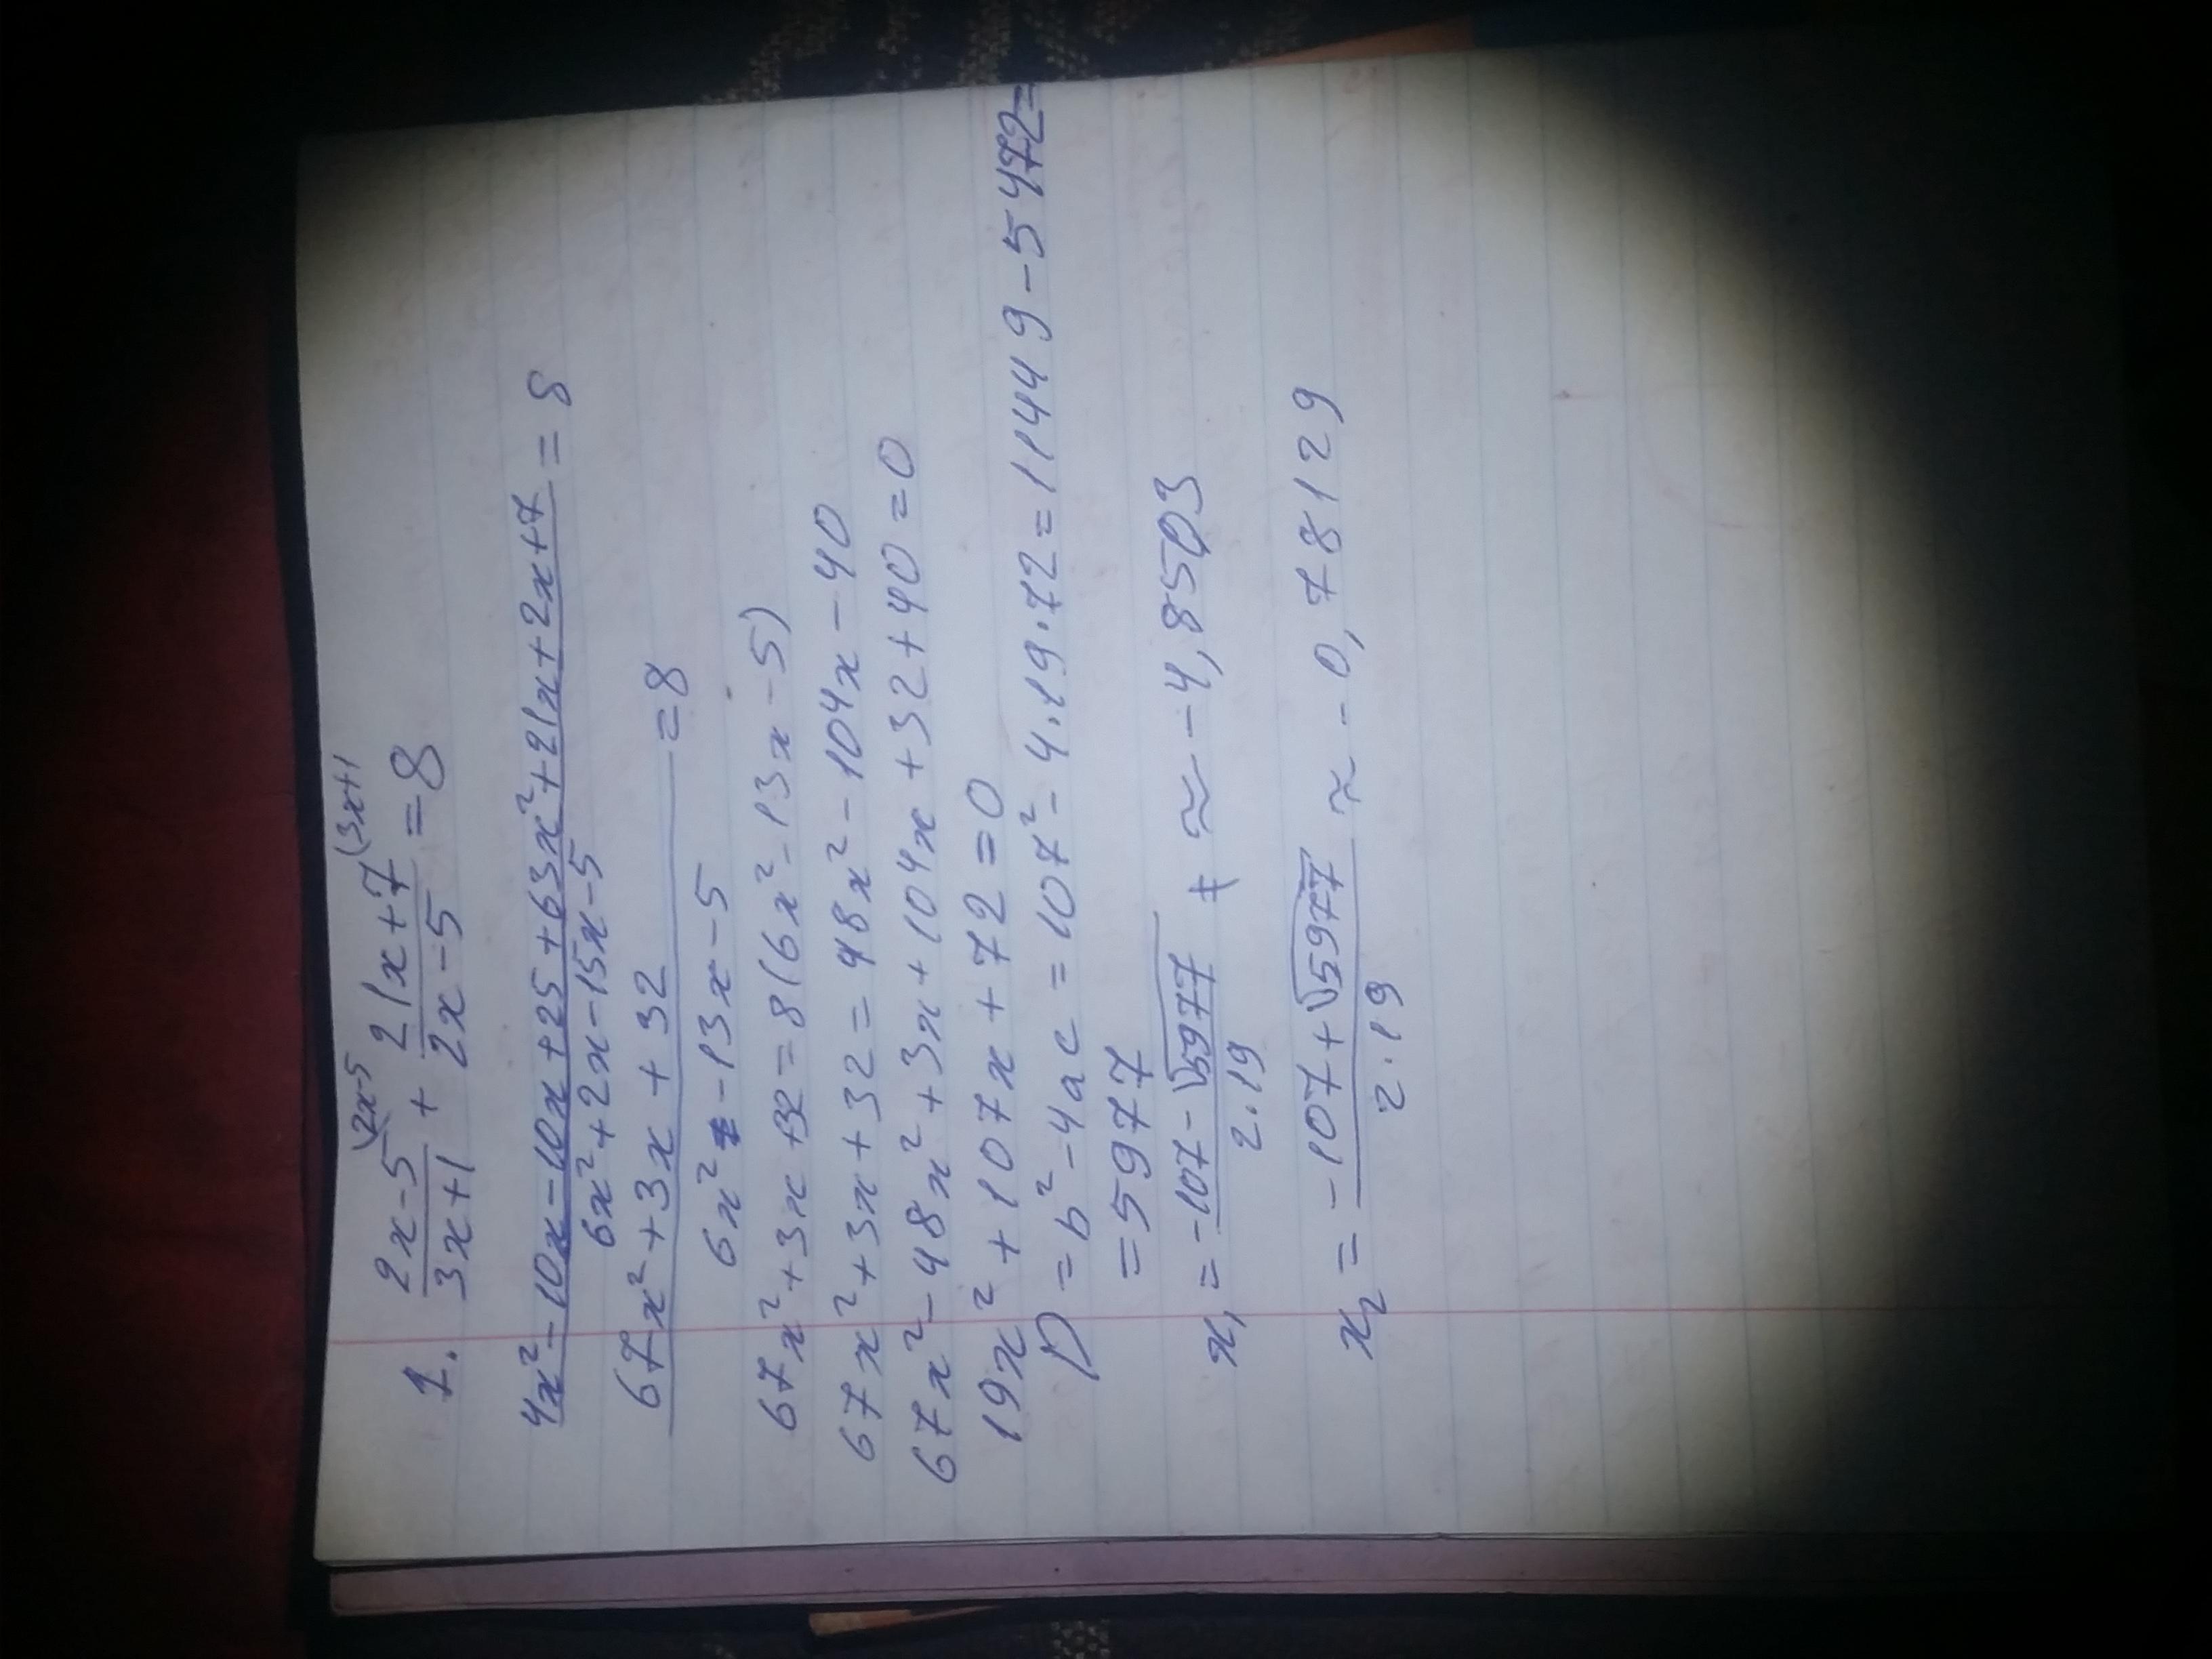 1. (2x-5)/(3x+1) (2x-5 + (21x+7)/(2x-5) (3x+1 = 8
(4x²-10x-10x+25+63x²+21x+2x+7)/(6x²+2x-15x-5) = 8
(67x²+3x+32)/(6x²-13x-5) = 8
67x²+3x+32=8(6x²-13x-5)
67x²+3x+32=48x²-104x-40
67x²-48x²+3x+104x+32+40=0
19x²+107x+72=0
D=b²-4ac=107²-4·19·72=11449-5472=
=5977
x₁=(-107-√5977)/(2·19) ≈ -4,8503
x₂=(-107+√5977)/(2·19) ≈ -0,78129